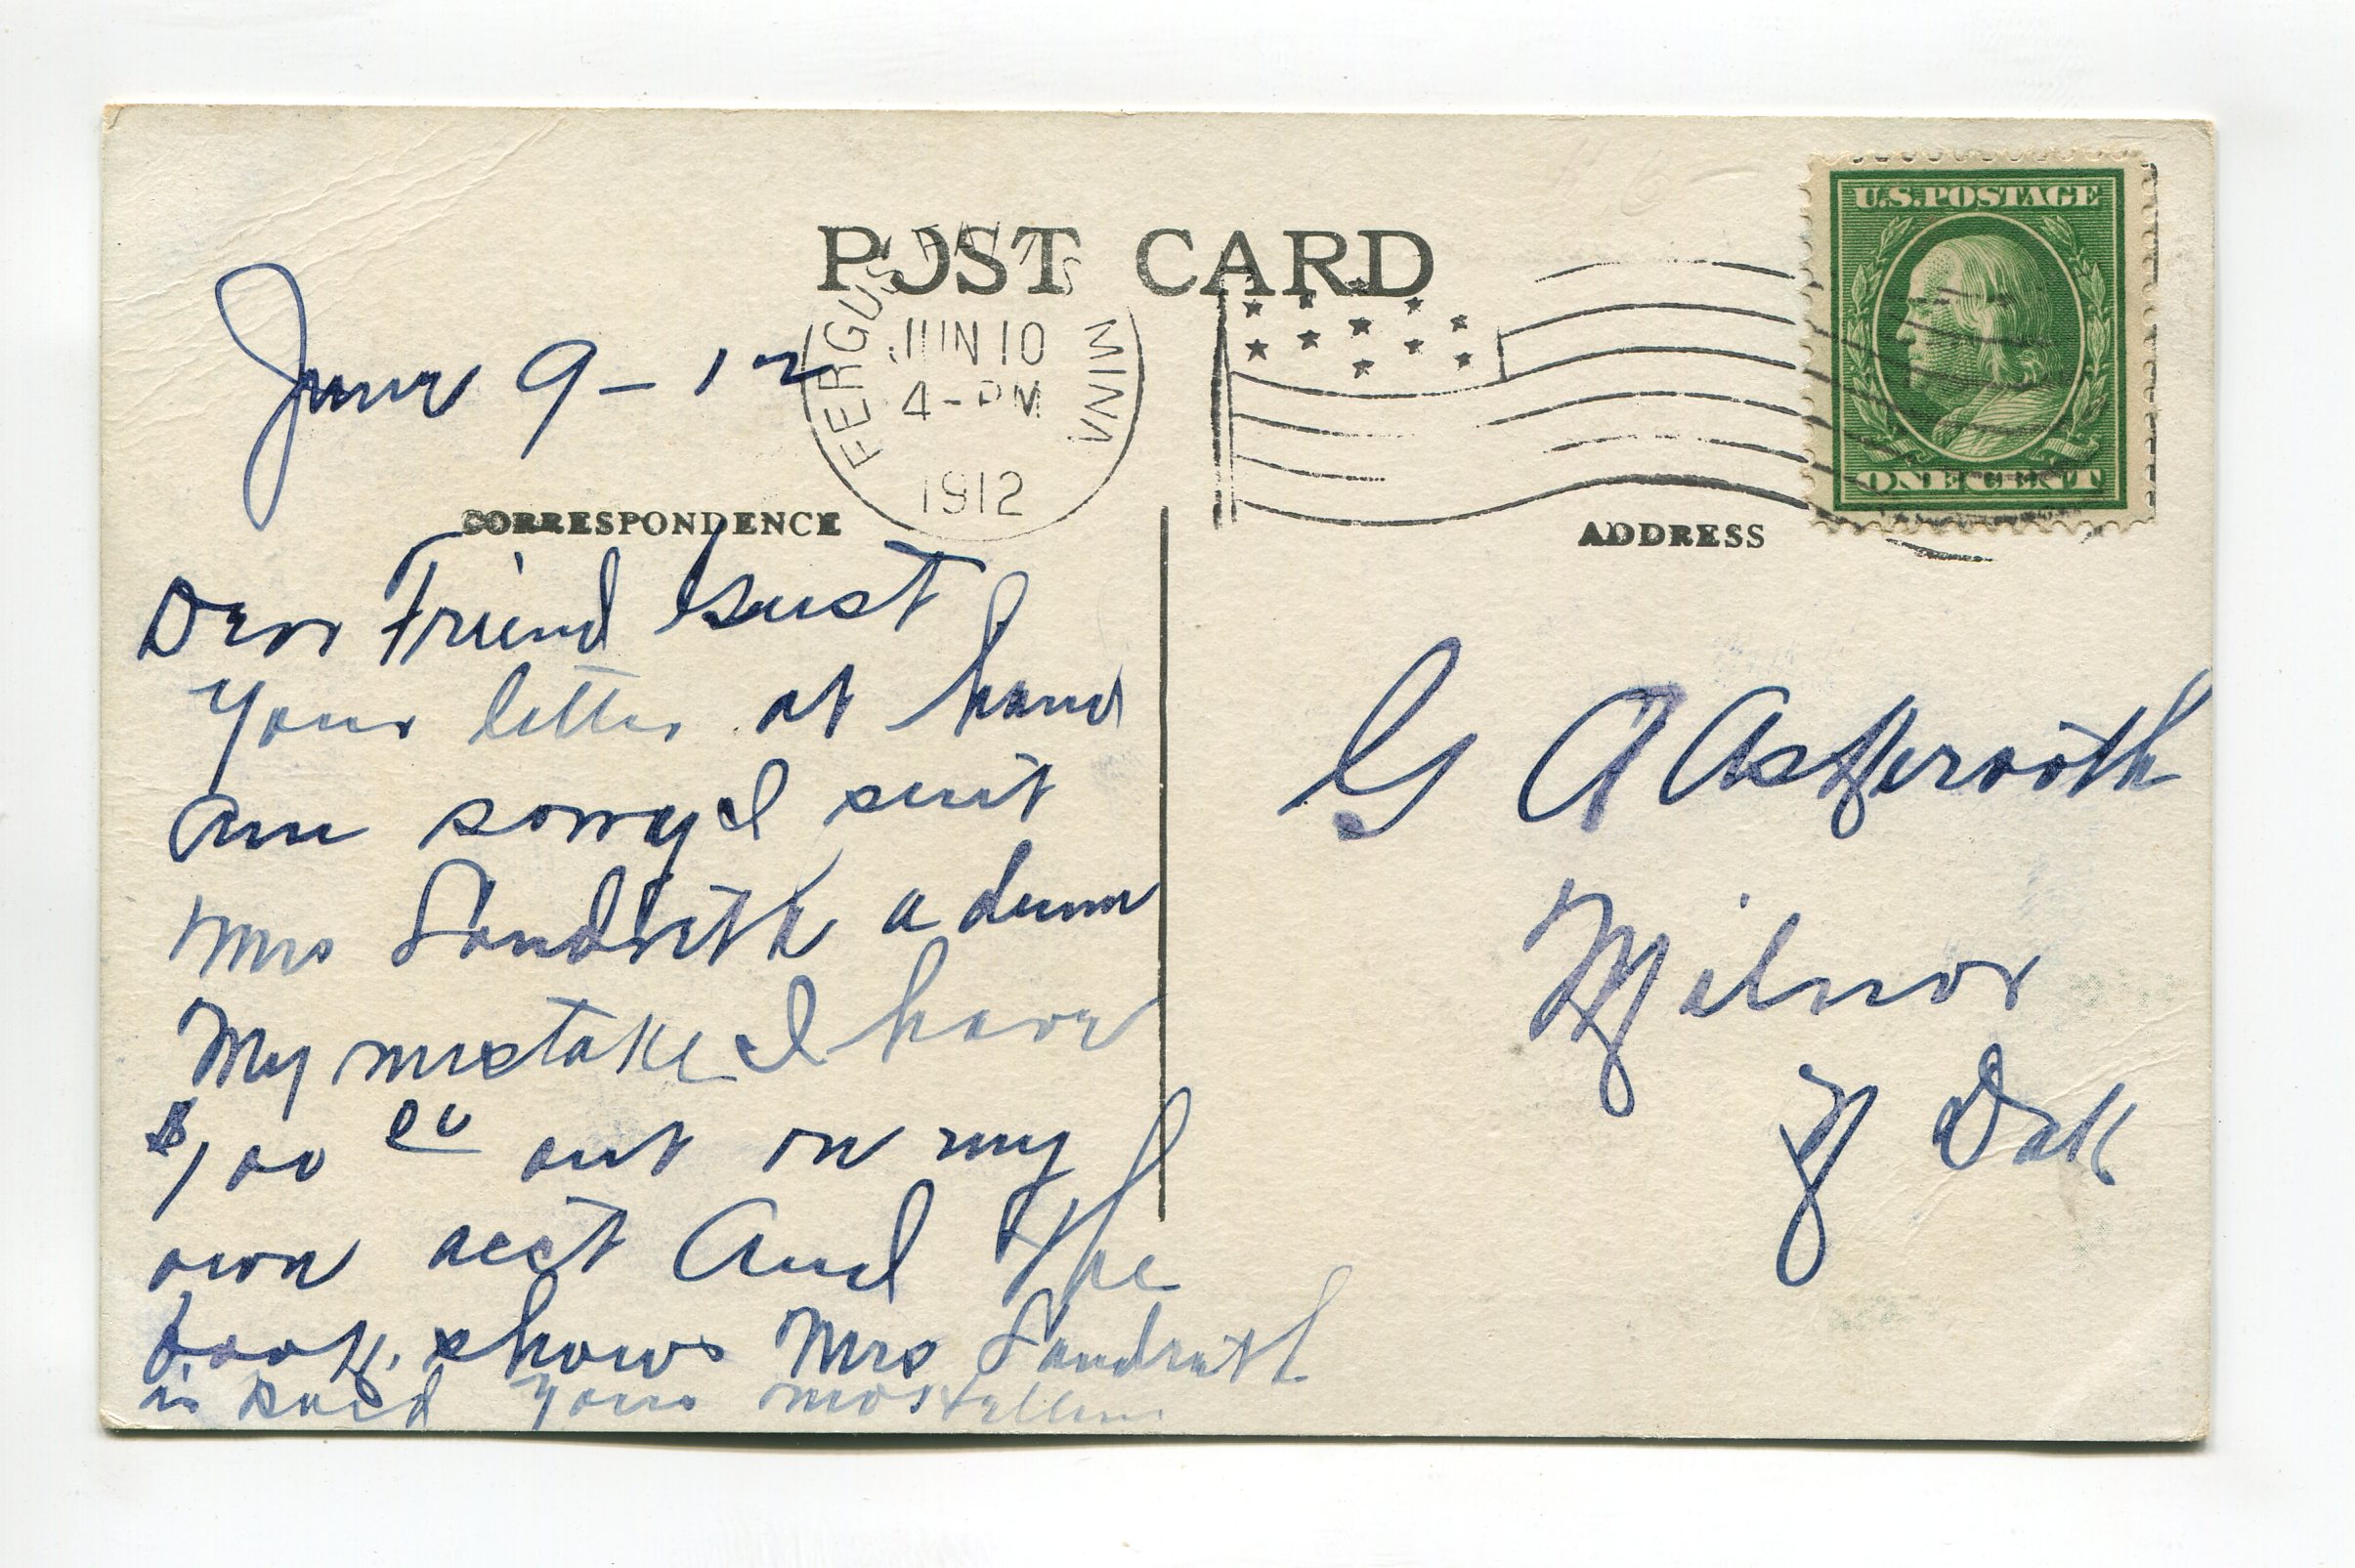 POST CARD
U.S. POSTAGE
ONE CENT
FERGUS FALLS MINN
JUN 10
4-PM
1912
June 9-12
CORRESPONDENCE
Dear Friend Gust
Your letter at hand
Am sorry I sent
Mrs Sandreth a dunn
My mistake I have
$100 00 out on my
own acct And the
book shows Mrs Sandreth
is Paid Yours
ADDRESS
G A
Milnor
N Dak